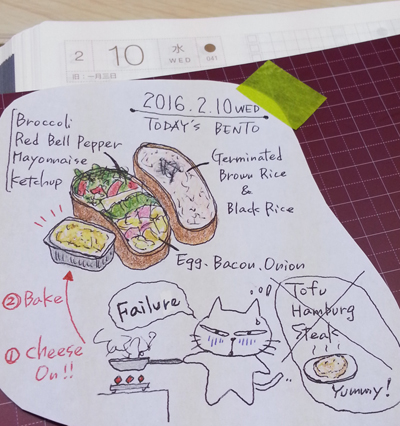 2
10
水
WED.
041
旧:一月三日
2016.2.10 WED
TODAY's BENTO
Broccoli
Red Bell Pepper
Mayonnaise
Ketchup
Germinated
Brown Rice
&
Black Rice
Egg. Bacon. Onion
② Bake
① cheese
On!!
Failure
Tofu
Hamburg
Steak
Yummy!